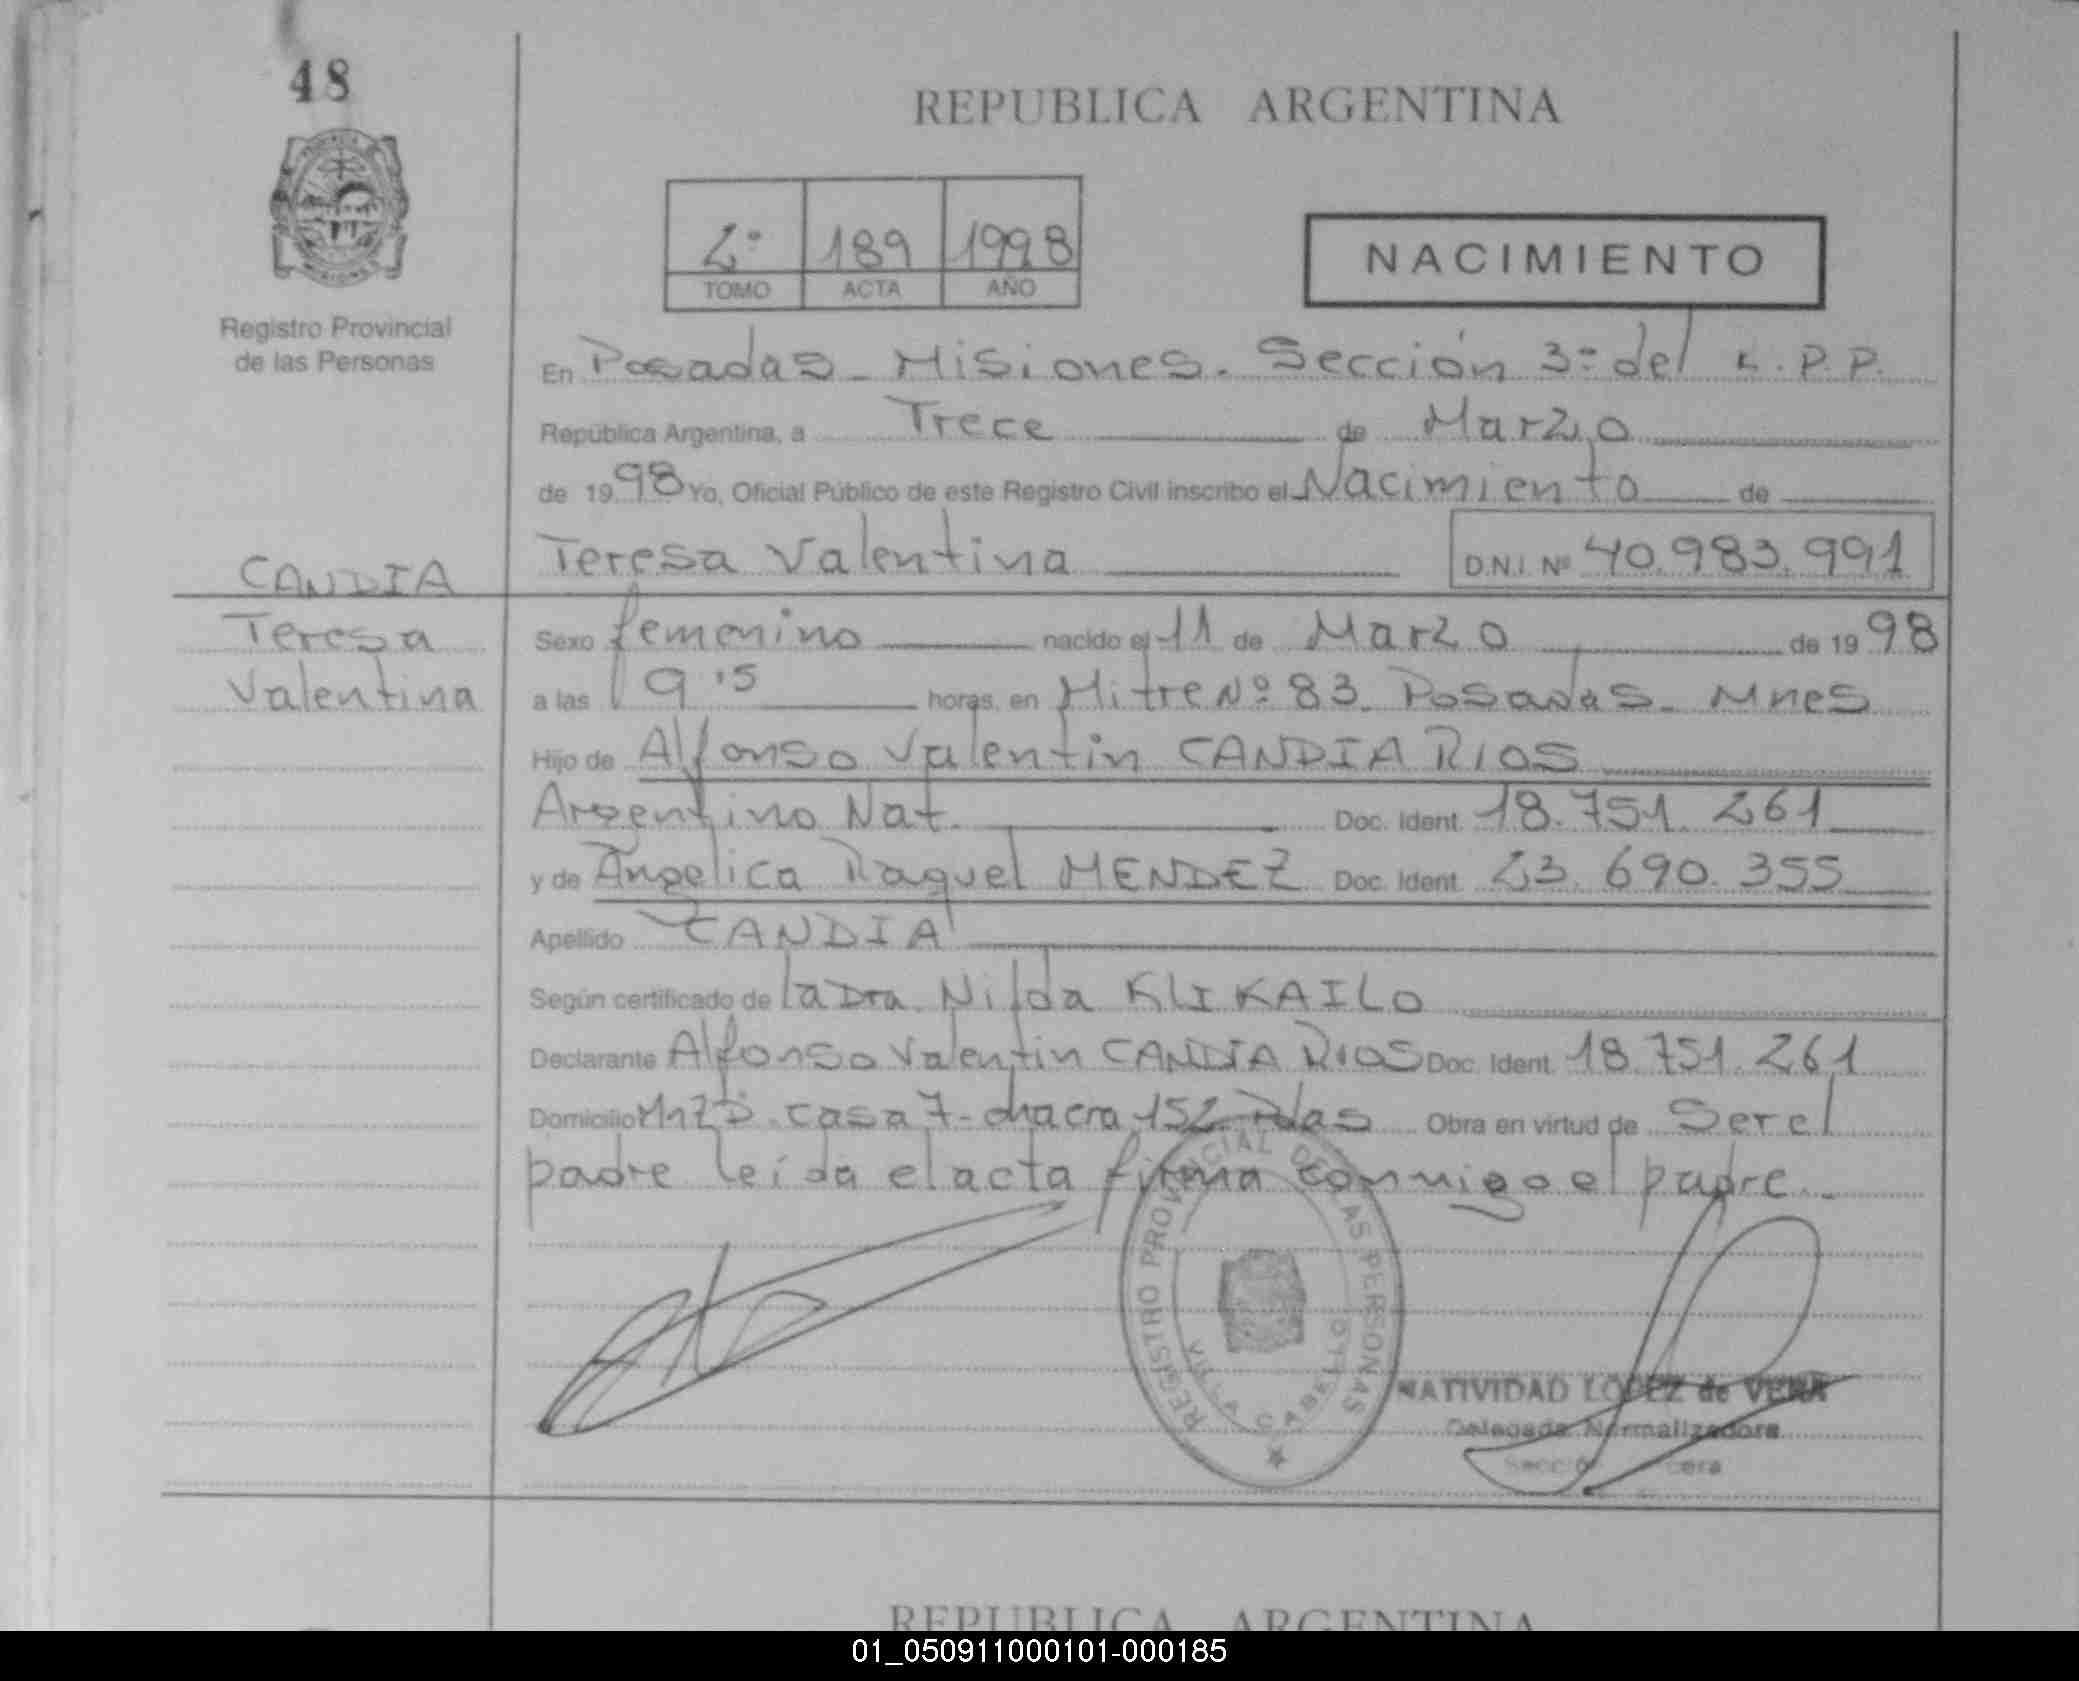 48
REPUBLICA ARGENTINA
2º 189 1998
TOMO ACTA AÑO
NACIMIENTO
Registro Provincial
de las Personas
En Posadas - Misiones. Sección 3ª del R.P.P.
República Argentina, a Trece de Marzo
de 1998 Yo, Oficial Público de este Registro Civil inscribo el Nacimiento de
Teresa Valentina D.N.I. Nº 40.983.991
CANDIA
Teresa
Valentina
Sexo femenino nacido el 11 de Marzo de 1998
a las 9,15 horas, en Mitre Nº 83. Posadas - Mnes
Hijo de Alfonso Valentin CANDIA RIOS
Argentino Nat. Doc. Ident. 18.751.261
y de Angelica Raquel MENDEZ Doc. Ident. 23.690.355
Apellido CANDIA
Según certificado de la Dra. Nilda KLIKAILO
Declarante Alfonso Valentin CANDIA RIOS Doc. Ident. 18.751.261
Domicilio casa 7 - chacra 152 Pdas Obra en virtud de Ser el
padre leída el acta firma conmigo el padre.-
REGISTRO PROVINCIAL DE LAS PERSONAS
VILLA CABELLO
NATIVIDAD LOPEZ de VERA
Delegada Normalizadora
REPUBLICA ARGENTINA
01_050911000101-000185